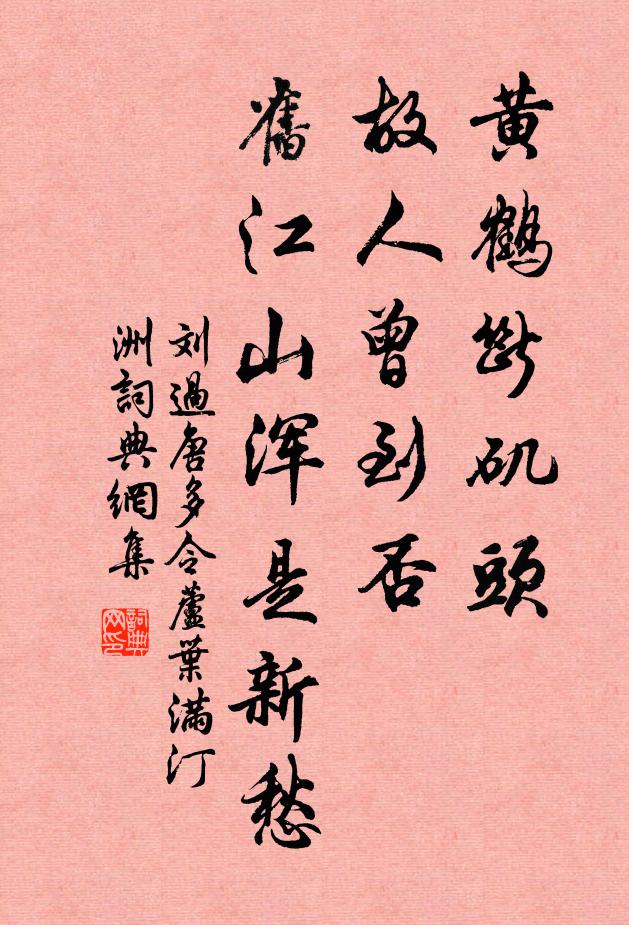 黄鶴断矶頭
故人曾到否
舊江山浑是新愁
刘過唐多令蘆葉满汀
洲詞典網集
詞典网印